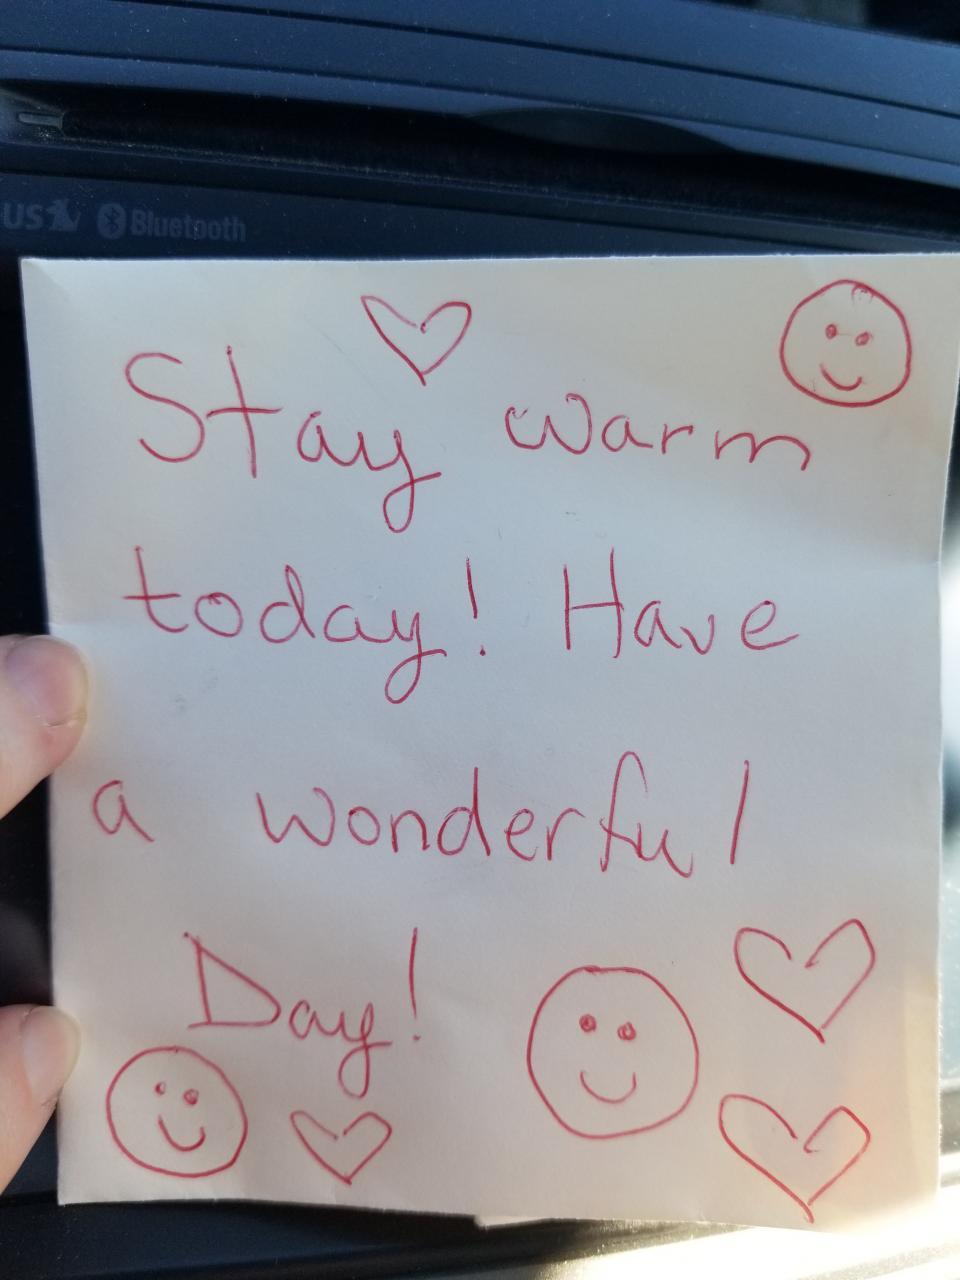 US
Bluetooth
Stay warm
today! Have
a wonderful
Day!